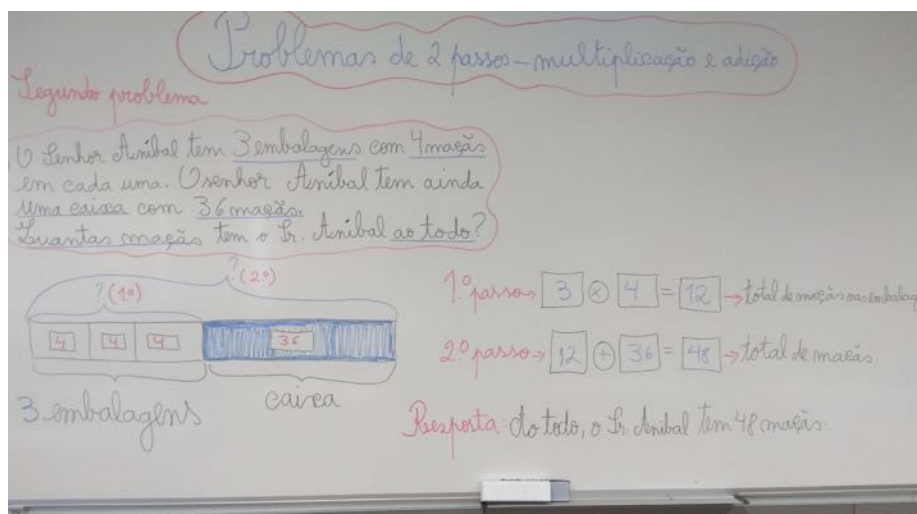 Problemas de 2 passos - multiplicação e adição
Segundo problema
O Senhor Aníbal tem 3 embalagens com 4 maçãs
em cada uma. O senhor Aníbal tem ainda
uma caixa com 36 maçãs.
Quantas maçãs tem o Sr. Aníbal ao todo?
? (2º)
? (1º)
4 4 4 36
3 embalagens caixa
1º passo → 3 × 4 = 12 → total de maçãs nas embalag
2º passo → 12 + 36 = 48 → total de maçãs
Resposta: Ao todo, o Sr. Aníbal tem 48 maçãs.